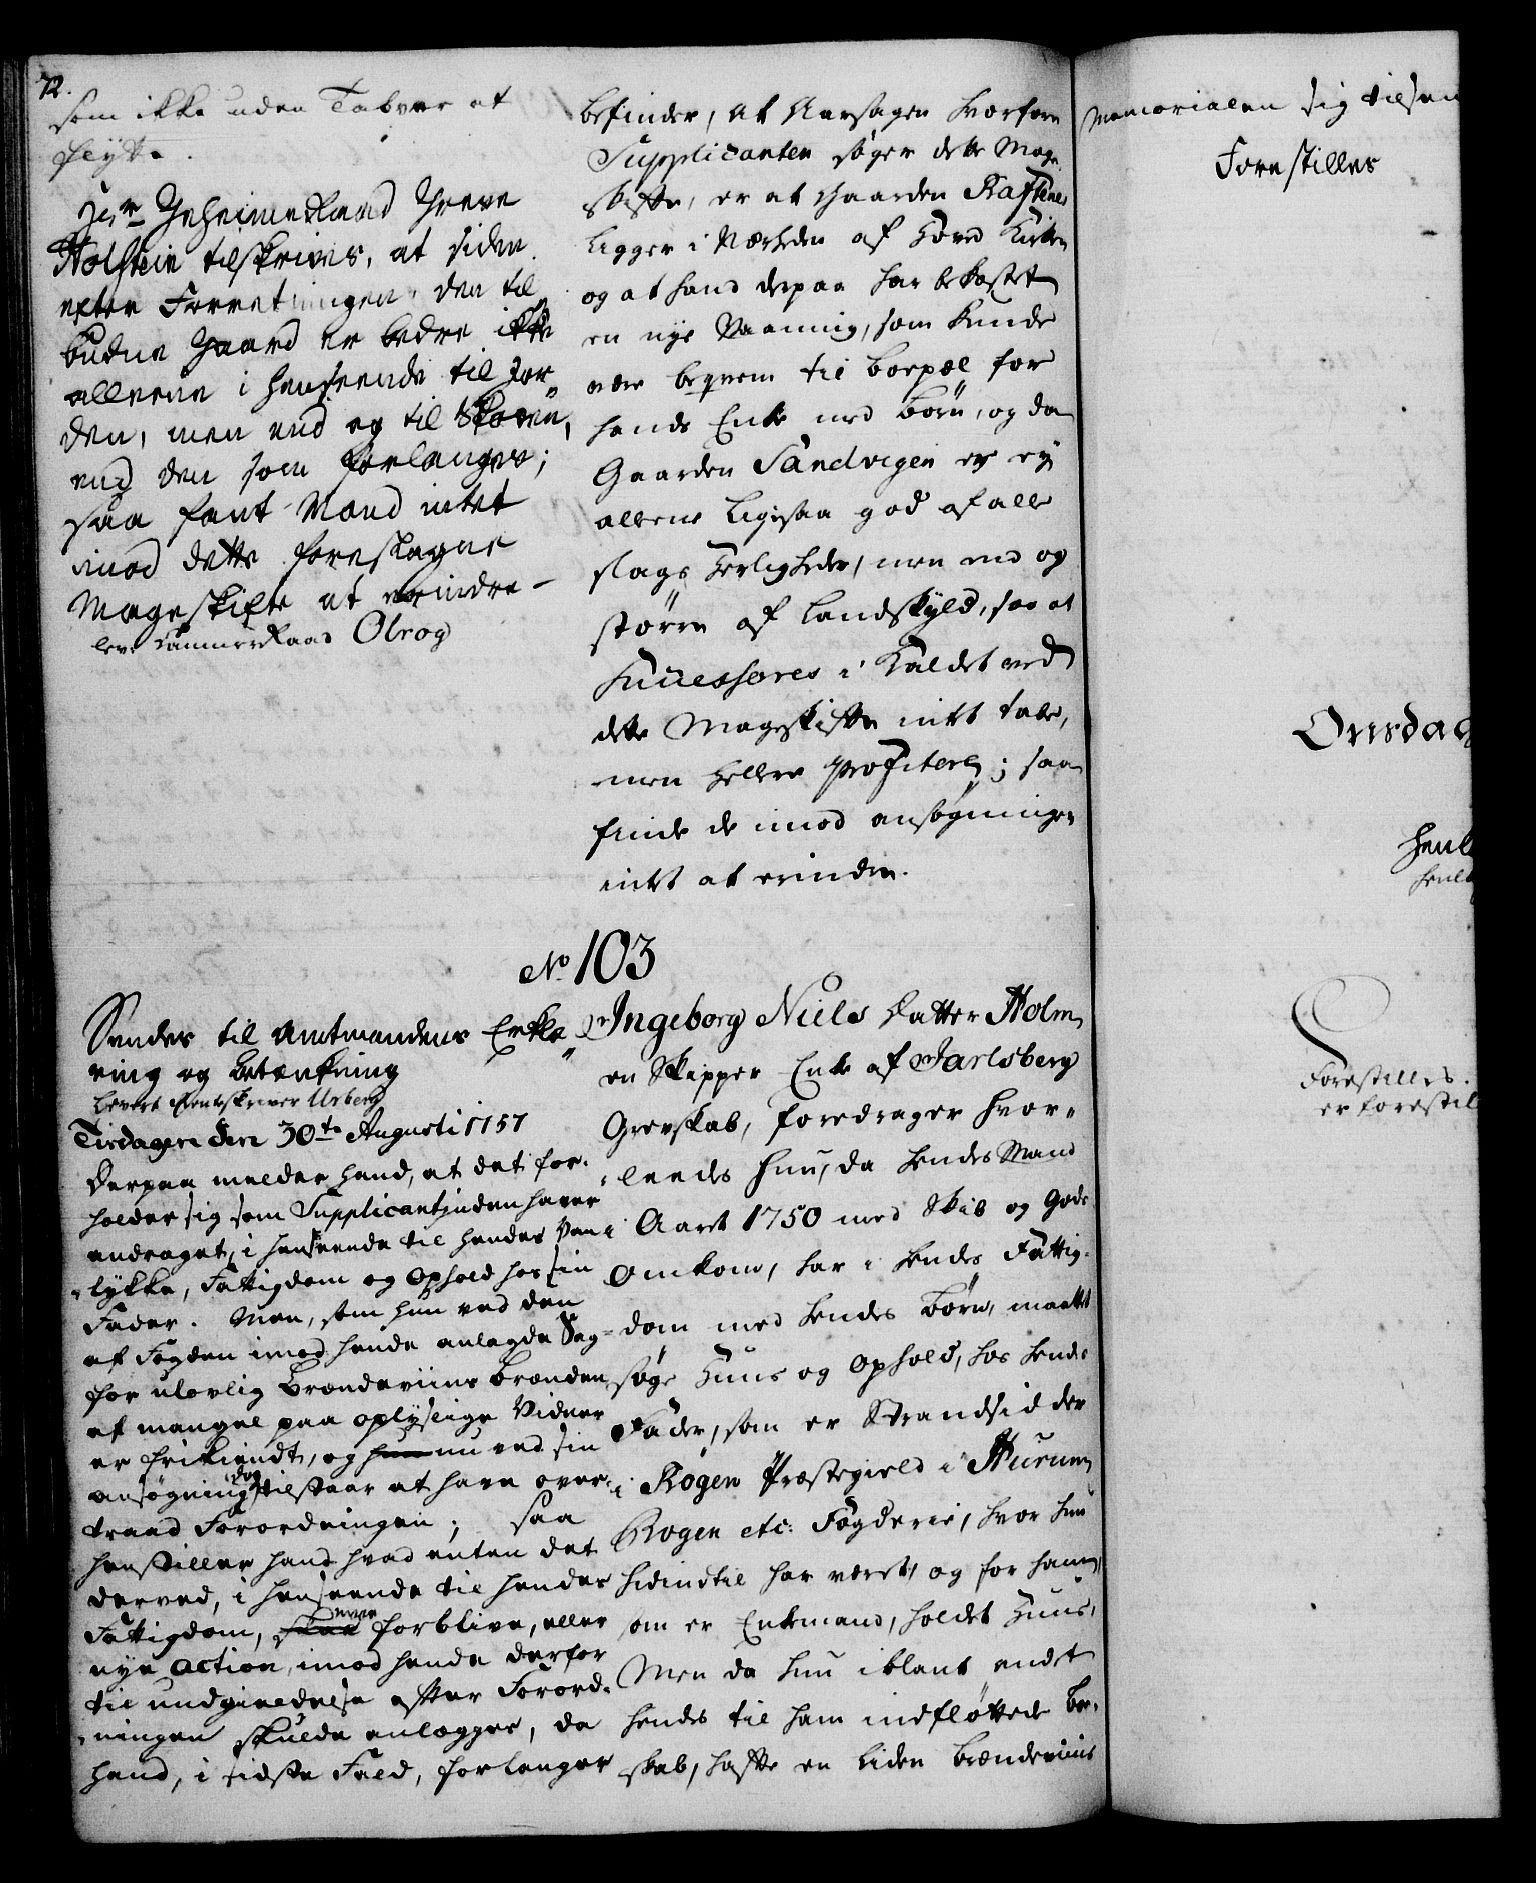 72.
som ikke uden Tabver at
flytte.
Hr. Geheimeraad Greve
Holstein tilskrives, at siden
efter Forretningen, den til
budne Gaard er bedre ikke
alleene i henseende til Jor
den, men end og til Skoven,
end den som forlanges;
saa fant Mand intet
imod dette foreslagne
Mageskifte at erindre
lev. Cammerraad Olrog
befinder, at Aarsagen hvorfore
Supplicanten søger dette Mage
skifte, er at Gaarden Rafsnes
ligger i Nærheden af Hoved Kirken
og at hand derpaa har bekostet
en nye Vaaning, som kunde
være beqvem til boepæl for
hands Enke med Børn, og da
Gaarden Sandvigen er ey
allene ligesaa god af alle
slags Herligheder, men end og
større af Landskyld, saa at
Successores i Kaldet ved
dette Mageskifte intet tabe,
men hellere profitere; saa
finde de imod ansøgningen
intet at erindre.
No. 103
Sendes til Amtmandens Erklæ
ring og Betænkning
Levert Renteskriver Urberg
Tirsdagen den 30te Augusti 1757
Derpaa melder hand, at det for,
holder sig som Supplicantinden haver
andraget, i henseende til hendes Van
lykke, Fattigdom og Ophold hos sin
Fader. Men, som hun ved den
af Fogden imod hende anlagde Sag
for ulovlig Brændeviins Brænden
af mangel paa oplyslige Vidner
er frikiendt, og hun nu ved sin
ansøgning dog tilstaar at have over,
traad Forordningen; saa
henstiller hand hvad enten det
derved, i henseende til hendes
Fattigdom, skal maae forblive, eller
nye Action, imod hende derfor
til undgieldelse efter Forord,
ningen skulde anlægges, da
hand, i sidste Fald, forlanger
Ingeborg Niels Datter Holm
en Skipper Enke af Jarlsberg
Grevskab, foredrager hvor,
leedes hun, da hendes Mand
i Aaret 1750 med Skib og Gods
omkom, har i hendes Fattig,
dom med hendes Børn, maattet
søge Huus og Ophold, hos hendes
Fader, som er Strandsidder
i Røgen Præstegield i Hurum
Rogen etc: Fogderie, hvor hun
hidindtil har været, og for ham,
som er Enkemand, holdet Huus,
Men da hun iblant andet
hendes til ham indfløttede Boe,
skab, hafte en liden brændeviins
Memorialen sig tilsen
Forestilles
Onsdag
Forestilles.
er forestil